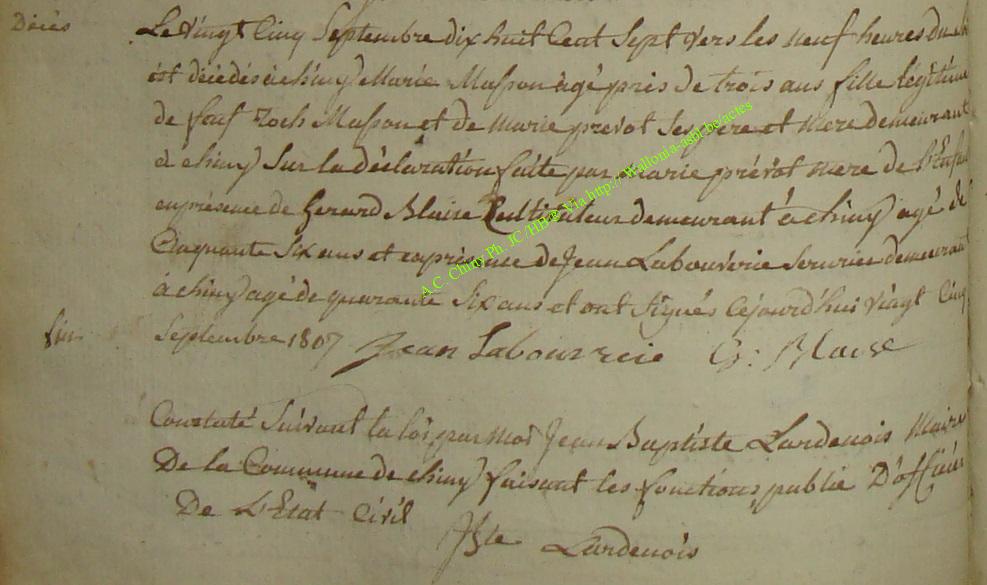 Décès
Le vingt Cinq Septembre dix huit Cent Sept vers les neuf heures du
est décédés à chiny Marie Masson agé près de trois ans fille légitime
de feu Roch Masson et de Marie prévot Ses père et mere demeurant
à chiny Sur la déclaration faite par marie prévôt mere de l'Enfant
en présence de Gerard Blaise Cultivateur demeurant à chiny agé de
Cinquante Six ans et en présence de Jean Labouverie Serurier demeurant
à chiny agé de quarante Six ans et ont Signés Cejourd'hui vingt Cinq
Septembre 1807 Jean Labouverie G: Blaise
Constaté Suivant la loi par moi Jean Baptiste Lardenois Maire
De la Commune de chiny faisant les fonctions publie D'officier
De L'Etat Civil
JBte Lardenois
A.C. Chiny Ph. JC /HB@ Via http://wallonia-asbl.be/actes